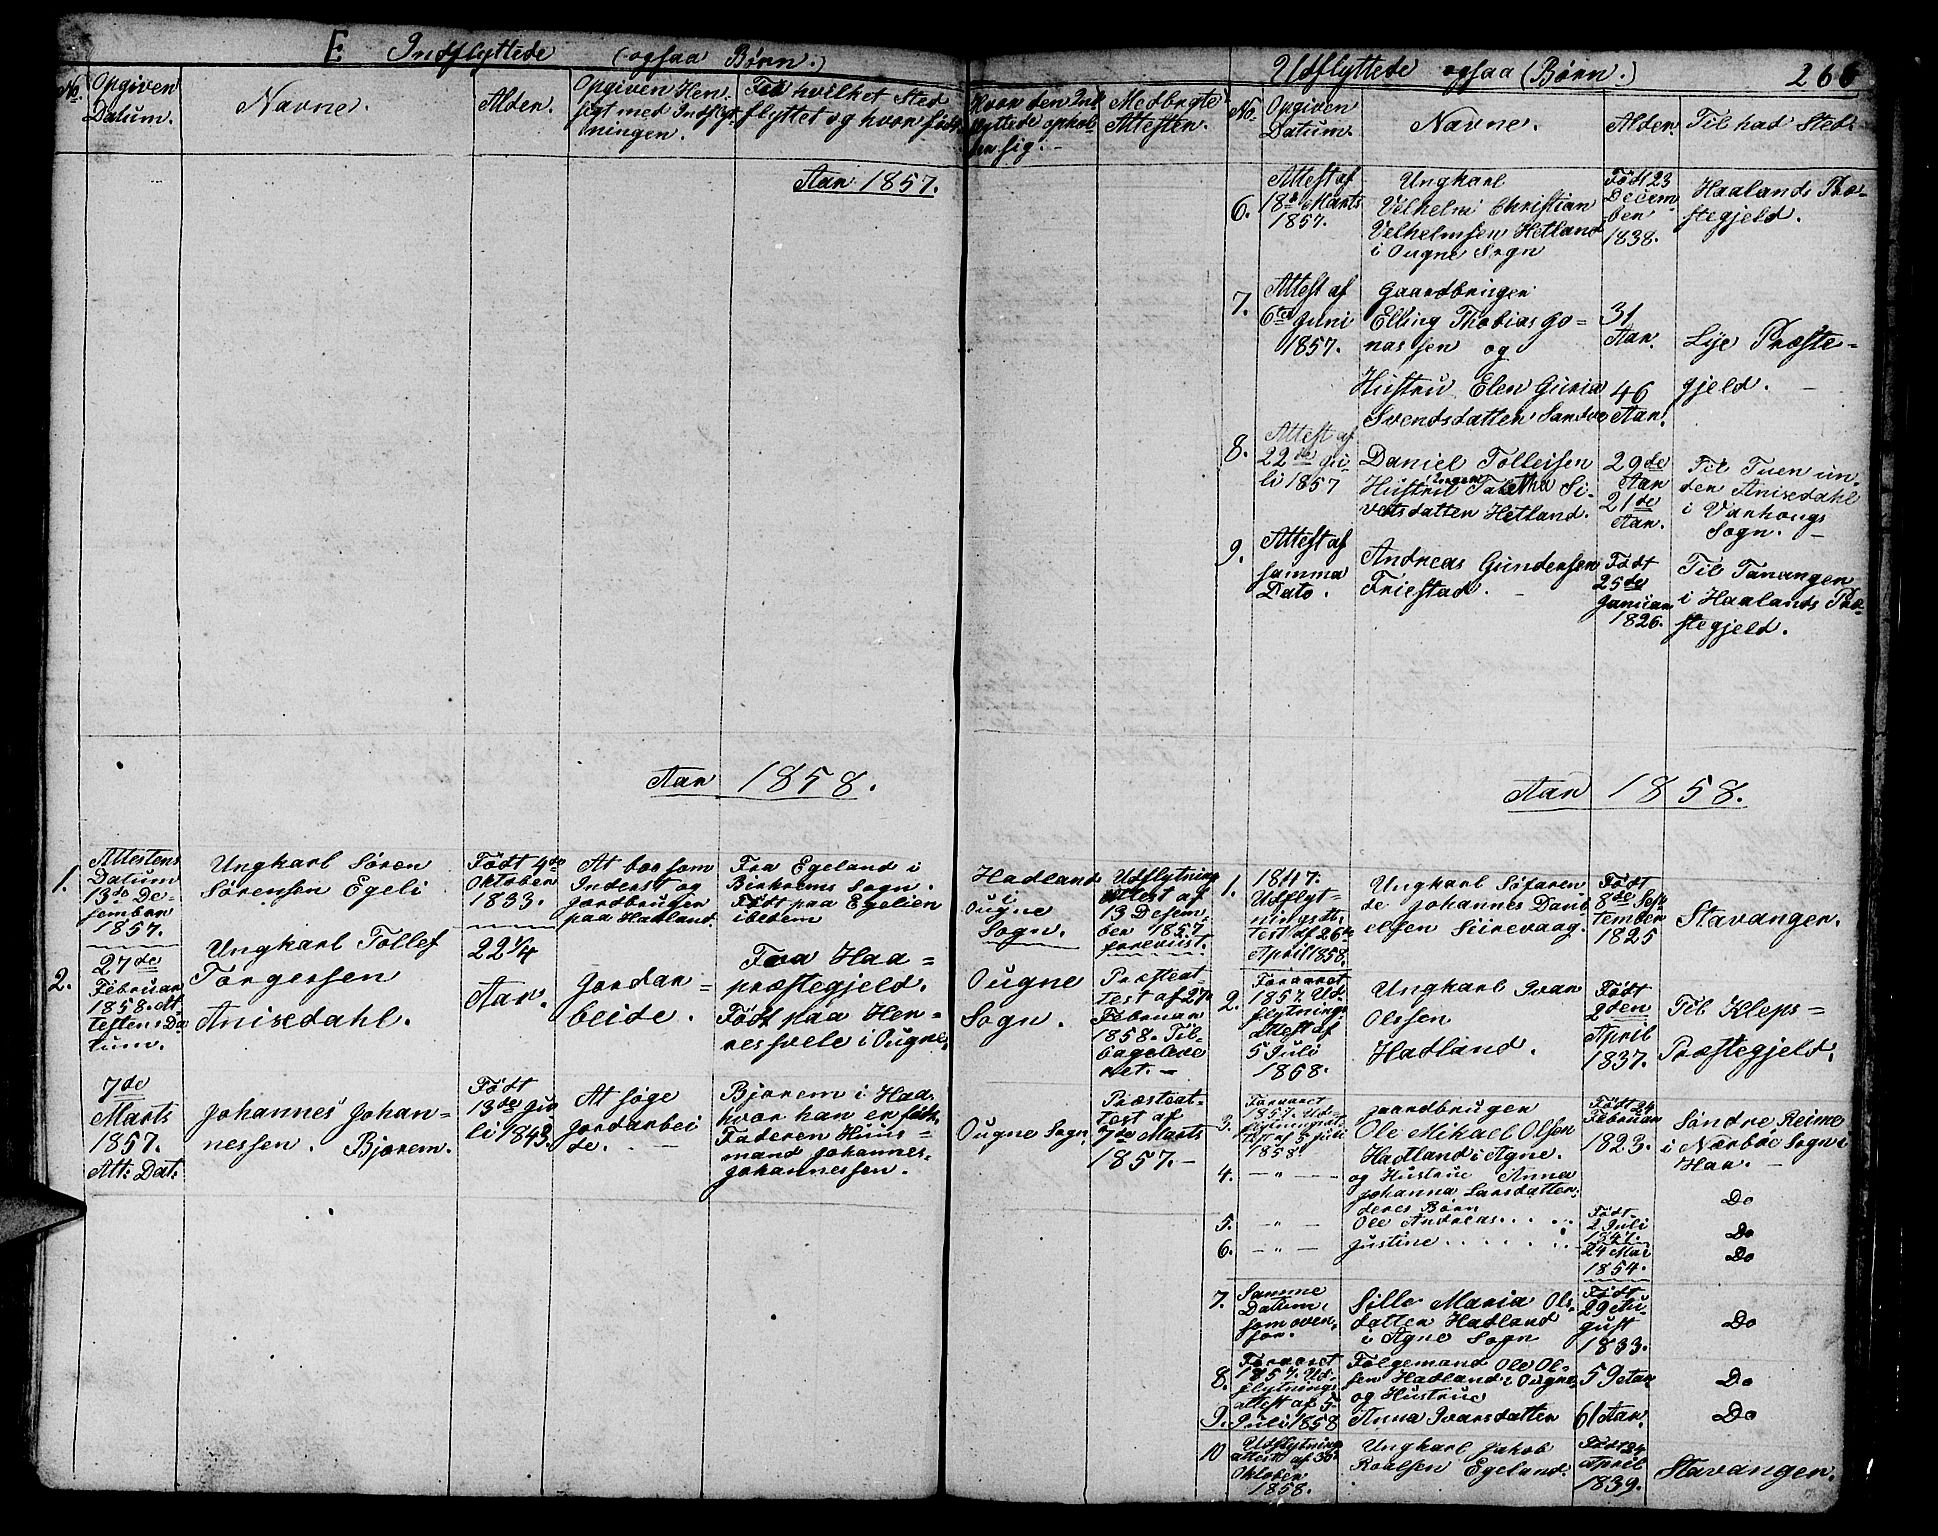 E Indflyttede (ogsaa Børn.)
No.
Opgiven
Datum.
Navne.
Alder.
Opgiven Hen
sigt med Indflyt
ningen.
Til hvilket Sted
flyttet og hvor født
Hvor den Ind
flyttede ophol
der sig.
Medbragte
Attester.
Aar 1857.
Aar 1858.
1.
Attestens
Datum
13de De-
sember
1857.
Ungkarl Søren
Sørensen Egeli
Født 4de
Oktober
1833.
At boe som
Inderst og
Jordbruger
paa Hadland.
Fra Egeland i
Birkrems Sogn.
Født paa Egelien
ibedem
Hadland
i
Ougne
Sogn.
Udflytning
Attest af
13 Desem
ber 1857
forevist.
2.
27de
Februar
1858. At
testens Da
tum.
Ungkarl Tollef
Torgersen
Anisdahl.
22 1/4
Aar.
Jordar-
beide.
Fra Haa-
præstegjeld.
Født paa Hen-
nesvele i Ougne.
Ougne
Sogn.
Præsteat
test af 27
Februar
1858. Til-
bageleve
ret. -
7de
Marts
1857.
Att: Dat:
Johannes Johan-
nessen. Bjorem.
Født
13de Ju
li 1843.
At søge
Jordarbei
de. -
Bjorem i Haa
hvor han er født
Faderen Huus-
mand Johannes
Johannessen.
Ougne Sogn
Præsteat-
test af
7de Marts
1857. -
Udflyttede ogsaa (Børn.)
266
No.
Opgiven
Datum.
Navne.
Alder
Til had Sted.
6.
Attest af
18de Marts
1857.
Ungkarl
Velhelm Christian
Velhelmsen Hetland
i Ougne Sogn
Født 23
Decem
ber
1838.
Haalands Præ-
stegjeld.
7.
Attest af
6te Juni
1857.
Gaardbruger
Elling Thobias Jo-
nassen og
Hustru Elen Guria
Svendsdatter Sandve
31
Aar.
46
Aar.
Lye Præste-
gjeld. -
8.
Attest af
22de Ju-
li 1857
Daniel Tolleisen
Hustru Inger Taletha Si-
vertsdatter Hetland.
29de
Aar
21de
Aar.
Til Tuen un-
der Anisdahl
i Varhougs
Sogn. -
9.
Attest af
samma
Dato.
Andreas Gundersen
Friestad. -
Født
25de
Januar
1826.
Til Tananger
i Haalands Præ-
stegjeld.
Aar 1858.
1.
1847.
Udflyt-
nings At-
test af 26
April 1858.
Ungkarl Søfaren
Johannes Dani
elsen Siirevaag.
Født
8de Sep
tember
1825
Stavanger.
2.
Forvaret
1857. Ud-
flytnings
attest af
5 Juli
1858.
Ungkarl Ivar
Olssen
Hadland.
Født
2den
April
1837.
Til Kleps-
Præstegjeld.
3.
Forvaret
1857. Ud-
flytningsat
test af 5 Juli
1858
Gaardbruger
Ole Mikael Olsen
Hadland i Agne.
Født 24
Februar
1823.
Søndre Reime
i Nærboe Sogn i
Haa. -
4.
- " - -
og Hustrue Anna
Johanna Larsdatter.
Do
deres Børn
5.
- " -
Ole Andreas. . . . .
Født
2 Juli
1847.
Do
6.
- " -
Justine . . . . . .
24 Mai
1854.
Do
7.
Samme
Datum,
som oven-
for.
Sille Maria Ols-
datter Hadland
i Agne Sogn
Født
29 Au-
gust
1833.
Do
8.
Forvaret
1857. Ud-
flytnings
attest af 5
Følgemand Ole Ol-
sen Hadland i Ougne
og Hustrue
59 Aar
Do
9.
Juli 1858
Anna Ivarsdatter
61 Aar.
Do
10
Udflytning
attest af 30
Oktober
1858.
Ungkarl Jakob
Roalsen Egeland.
Født 24
April
1839.
Stavanger.